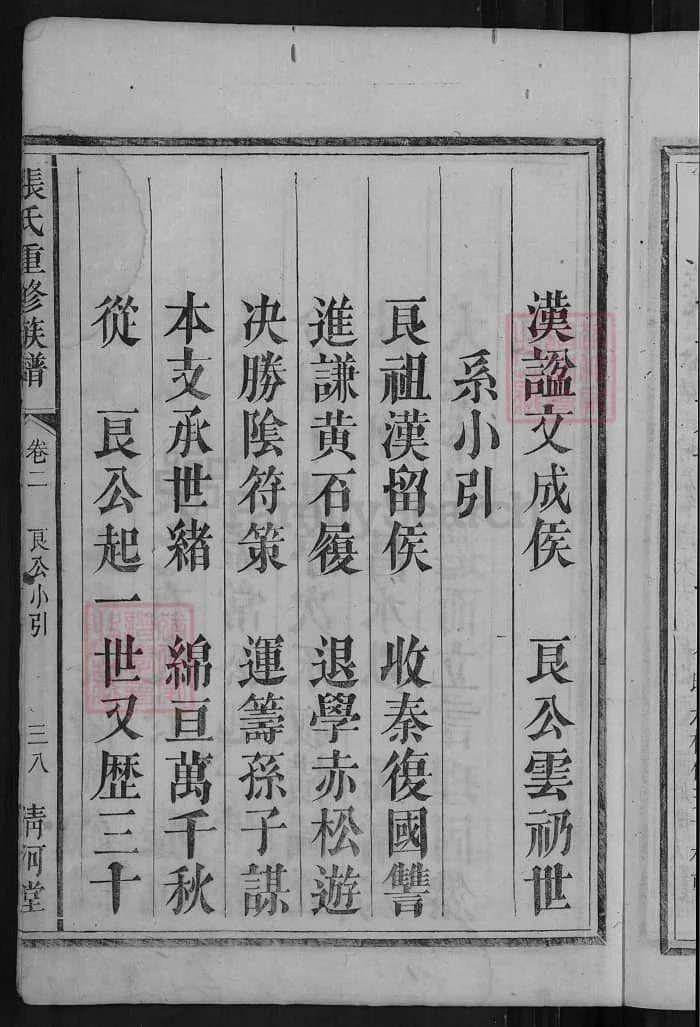 漢諡文成侯　良公雲礽世
系小引
良祖漢留侯　收秦復國讐
進謙黃石履　退學赤松遊
決勝陰符策　運籌孫子謀
本支承世緒　綿亘萬千秋
從　良公起一世又歷三十
張氏重修族譜　卷二　良公小引　三八　清河堂